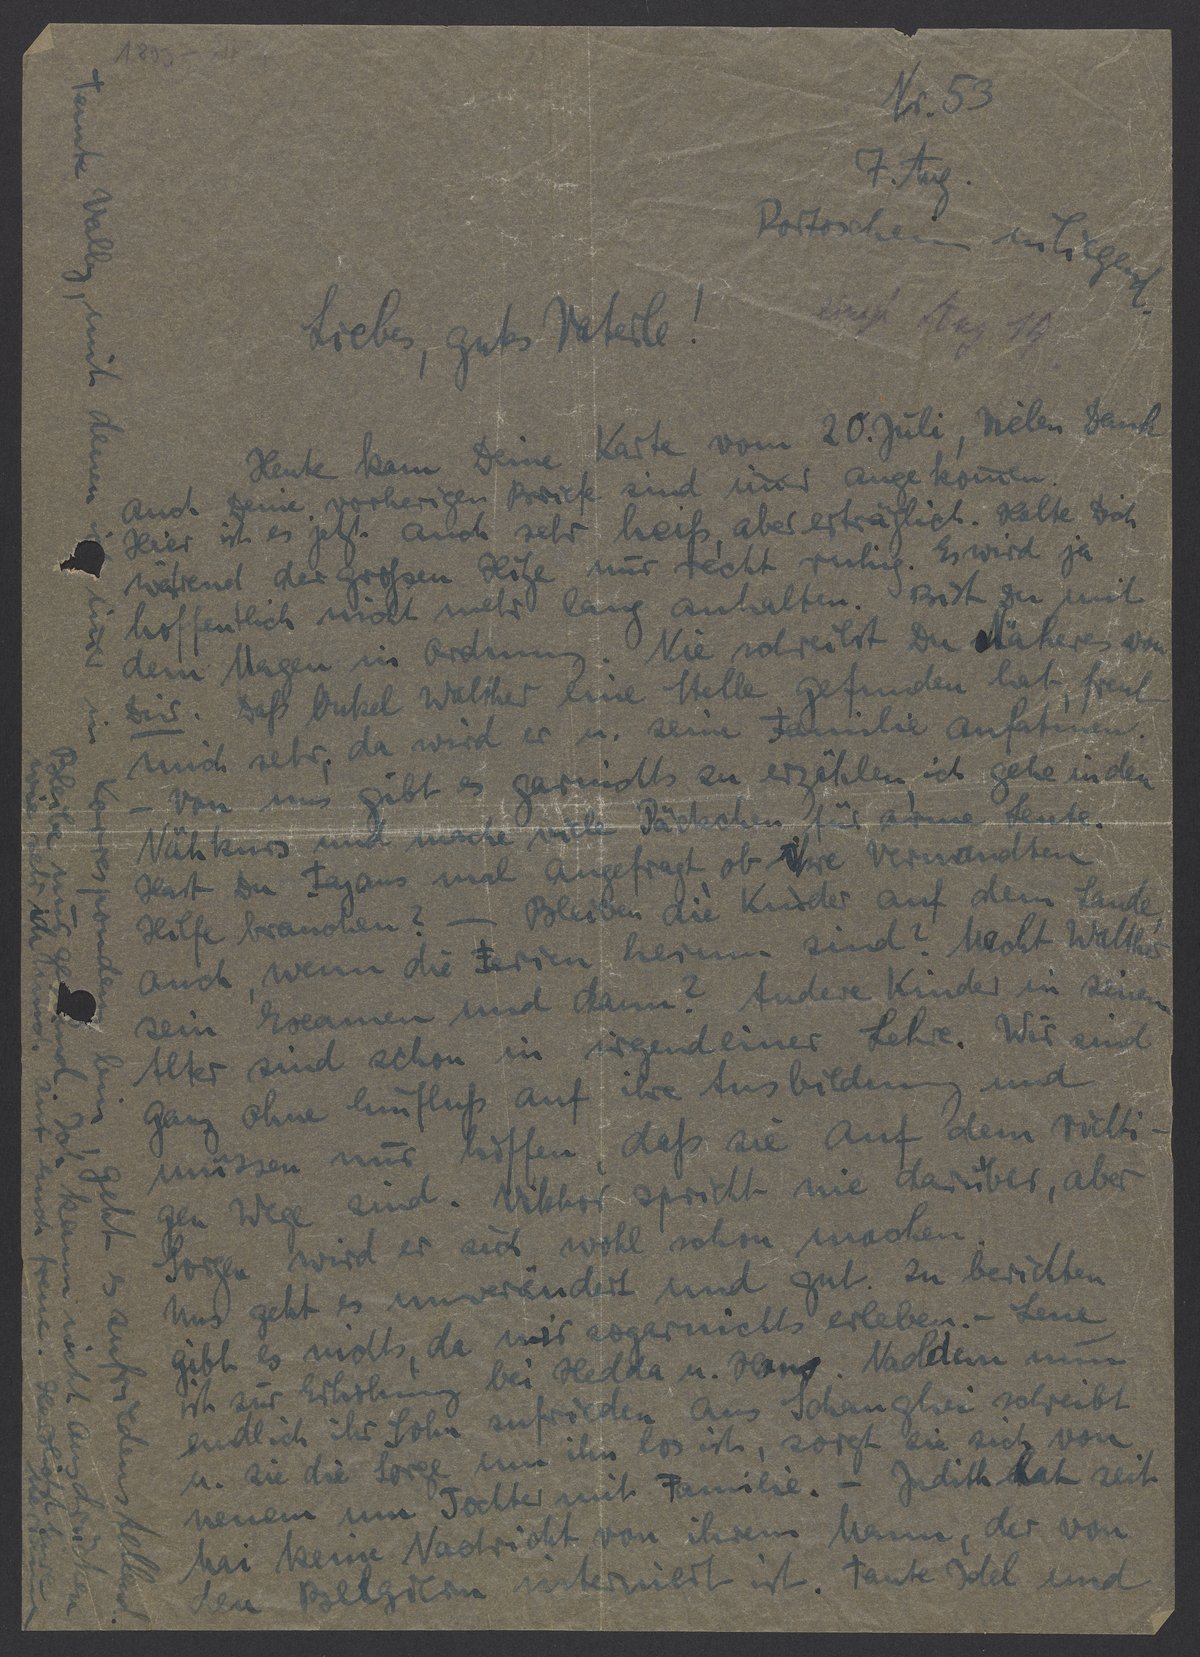 Nr. 53
7. Aug.
Portoschein inliegend.
Aug 19.
Liebes, gutes Vaterle!
Heute kam Deine Karte vom 20. Juli, vielen Dank
auch Deine vorherigen Briefe sind immer angekommen.
Hier ist es jetzt auch sehr heiß, aber erträglich. Halte Dich
während der großen Hitze nur recht ruhig. Es wird ja
hoffentlich nicht mehr lang anhalten. Bist Du mit
dem Magen in Ordnung. Nie schreibst Du Näheres von
Dir. Daß Onkel Walther eine Stelle gefunden hat, freut
mich sehr, da wird er u. seine Familie aufatmen.
- Von uns gibt es garnichts zu erzählen, ich gehe in den
Nähkurs und mache viele Päckchen für arme Leute.
Hast Du Fajans mal angefragt ob ihre Verwandten
Hilfe brauchen? - Bleiben die Kinder auf dem Lande,
auch, wenn die Ferien herum sind? Macht Walther
sein Examen und dann? Andere Kinder in seinem
Alter sind schon in irgendeiner Lehre. Wir sind
ganz ohne Einfluß auf ihre Ausbildung und
müssen nur hoffen, daß sie auf dem richti-
gen Wege sind. Viktor spricht nie darüber, aber
Sorgen wird er sich wohl schon machen.
Uns geht es unverändert und gut. Zu berichten
gibt es nichts, da wir sogarnichts erleben. - Lene
ist zur Erholung bei Hedda u. Hans. Nachdem nun
endlich ihr Sohn zufrieden aus Schanghei schreibt
u. sie die Sorge um ihn los ist, sorgt sie sich von
neuem um Tochter mit Familie. - Judith hat seit
Mai keine Nachricht von ihrem Mann, der von
den Belgiern interniert ist. Tante Idel und
Tante Vally, mit denen ich in Korrespondenz bin, geht es zufriedenstellend.
Bleibe nur gesund, ich kann nicht ausdrücken
wie sehr ich immer